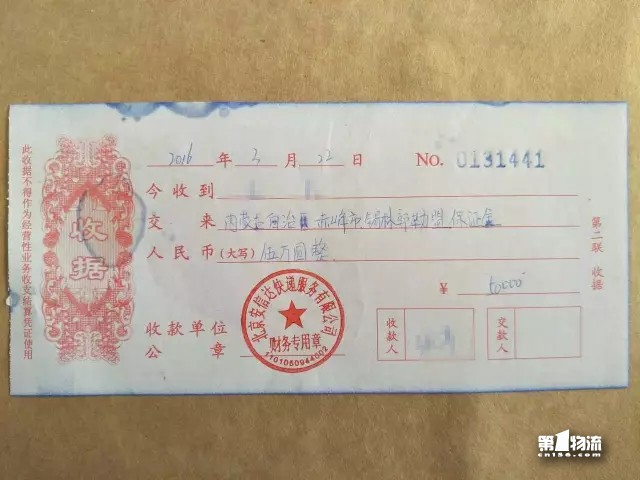 此收据不得作为经营性业务收支结算凭证使用
收据
2016 年 3 月 22 日 NO. 0131441
今收到
交来 内蒙古自治区 赤峰市 锡林郭勒盟 保证金
人民币(大写) 伍万圆整
¥ 50000
收款单位
公章
北京安信达快递服务有限公司
财务专用章
1101060944002
收款人
交款人
第二联 收据
第1物流
cn156.com